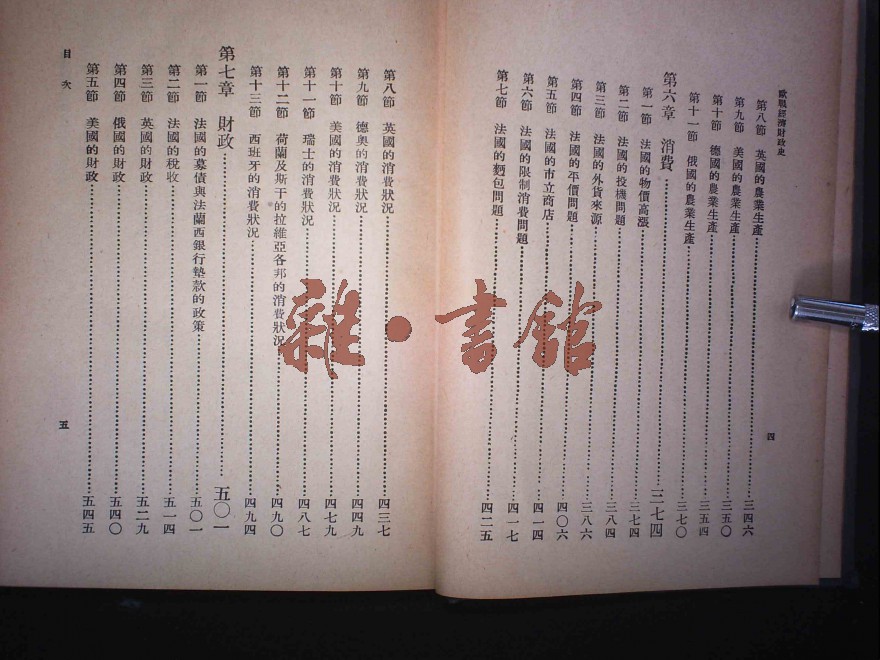 歐戰經濟財政史
第八節　英國的農業生產……三四六
第九節　美國的農業生產……三五〇
第十節　德國的農業生產……三五四
第十一節　俄國的農業生產……三七〇
第六章　消費……三七四
第一節　法國的物價高漲……三七四
第二節　法國的投機問題……三八四
第三節　法國的外貨來源……三八六
第四節　法國的平價問題……四〇六
第五節　法國的市立商店……四一四
第六節　法國的限制消費問題……四一七
第七節　法國的麵包問題……四二五
四
第八節　英國的消費狀況……四三七
第九節　德奧的消費狀況……四四九
第十節　美國的消費狀況……四七九
第十一節　瑞士的消費狀況……四八七
第十二節　荷蘭及斯干的拉維亞各邦的消費狀況……四九〇
第十三節　西班牙的消費狀況……四九四
第七章　財政……五〇一
第一節　法國的募債與法蘭西銀行墊款的政策……五〇一
第二節　法國的稅收……五一四
第三節　英國的財政……五二九
第四節　俄國的財政……五四〇
第五節　美國的財政……五四五
目次
五
雜・書館